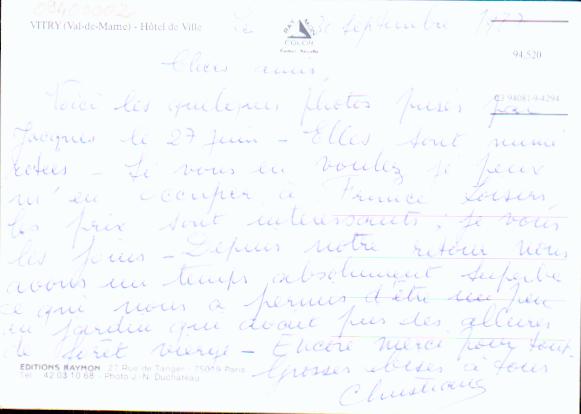 VITRY (Val-de-Marne) - Hôtel de Ville
Le septembre
RAYMON
COLOR
94.520
Chers amis,
C3 94081-9-4294
Voici les quelques photos prises par
Jacques le 27 juin - Elles sont numé
rotées - Si vous en voulez je peux
m'en occuper à France Loisirs,
les prix sont intéressants. Je vous
les joins - Depuis notre retour nous
avons un temps absolument superbe
ce qui nous a permis d'être un peu
au jardin qui avait pris des allures
de forêt vierge - Encore merci pour tout.
Grosses bises à tous
Christiane
EDITIONS RAYMON 27 Rue de Tanger - 75019 Paris
Tél. 42 03 10 68 - Photo J.-N. Duchateau